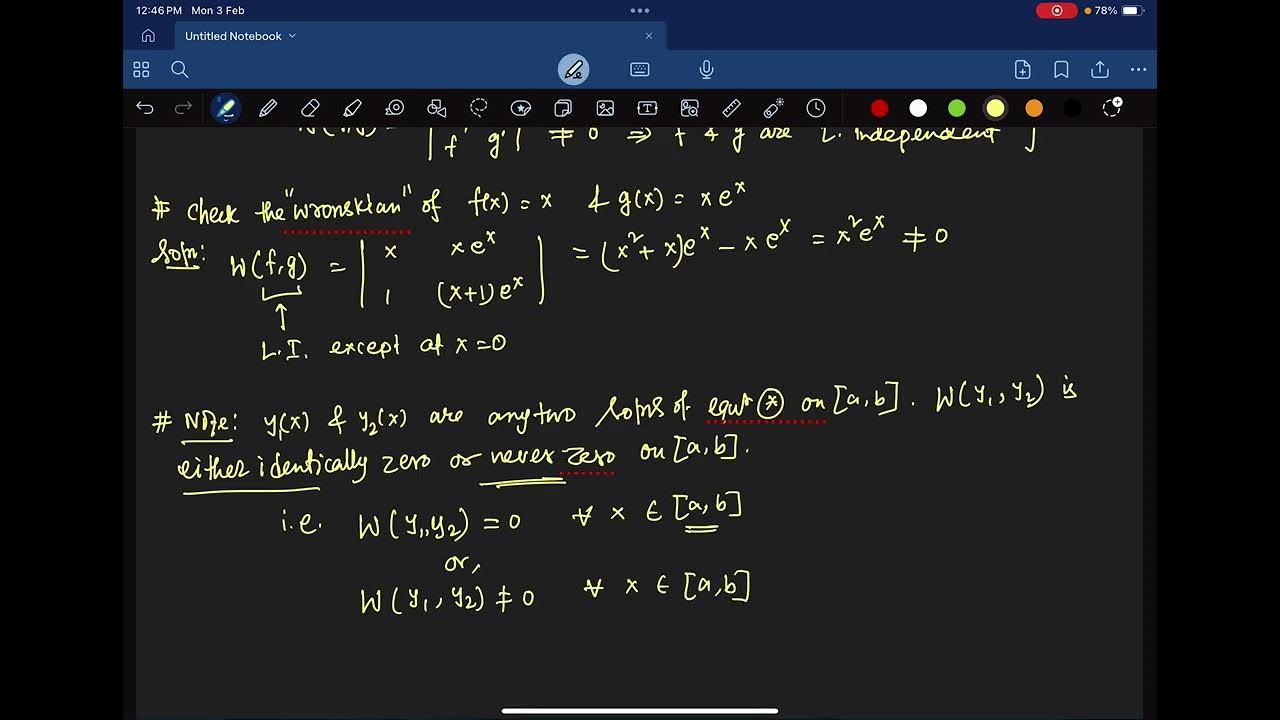 12:46 PM Mon 3 Feb
78%
Untitled Notebook
| f' g' | ≠ 0 ⇒ f & g are L. independent ]
# Check the "Wronskian" of f(x) = x & g(x) = x eˣ
Soln: W(f,g) = | x x eˣ | = (x² + x)eˣ - x eˣ = x² eˣ ≠ 0
| 1 (x+1) eˣ |
↑
L.I. except at x = 0
# Note: y₁(x) & y₂(x) are any two solns of equn ⊛ on [a, b]. W(y₁, y₂) is
either identically zero or never zero on [a, b].
i.e. W(y₁, y₂) = 0 ∀ x ∈ [a, b]
or,
W(y₁, y₂) ≠ 0 ∀ x ∈ [a, b]